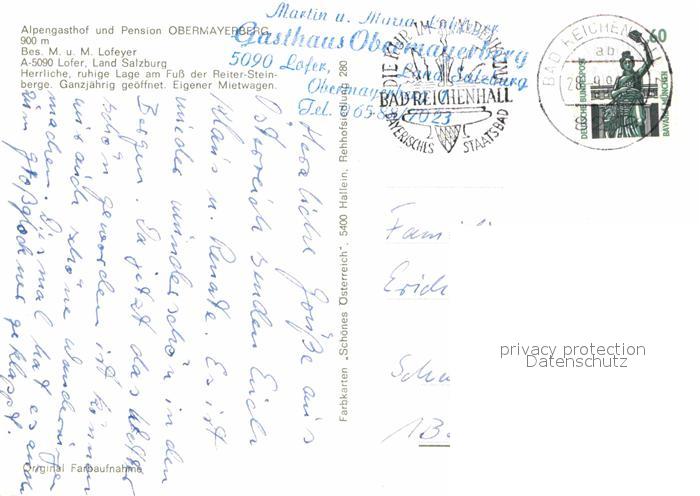 Alpengasthof und Pension OBERMAYERBERG
900 m
Bes. M. u. M. Lofeyer
A-5090 Lofer, Land Salzburg
Herrliche, ruhige Lage am Fuß der Reiter-Stein-
berge. Ganzjährig geöffnet. Eigener Mietwagen.
Martin u. Maria
Gasthaus Obermayerberg
5090 Lofer, Land Salzburg
Obermayerberg
Tel. 023
Herzliche Grüße aus
Österreich senden Euch
Klaus u. Renate. Es ist
wieder wunderschön in den
Bergen. Da jetzt das Wetter
schön geworden ist können
wir auch schöne Wanderungen
machen. Diesmal hat es auch
zum Großglockner geklappt.
Original Farbaufnahme
Farbkarten „Schönes Österreich", 5400 Hallein, Rehhofsiedlung 280
DIE KUR IM
BAD REICHENHALL
BAYERISCHES STAATSBAD
BAD REICHENHALL
ab
60
DEUTSCHE BUNDESPOST
BAVARIA MÜNCHEN
Fam
Erich
Schu
1B
privacy protection
Datenschutz